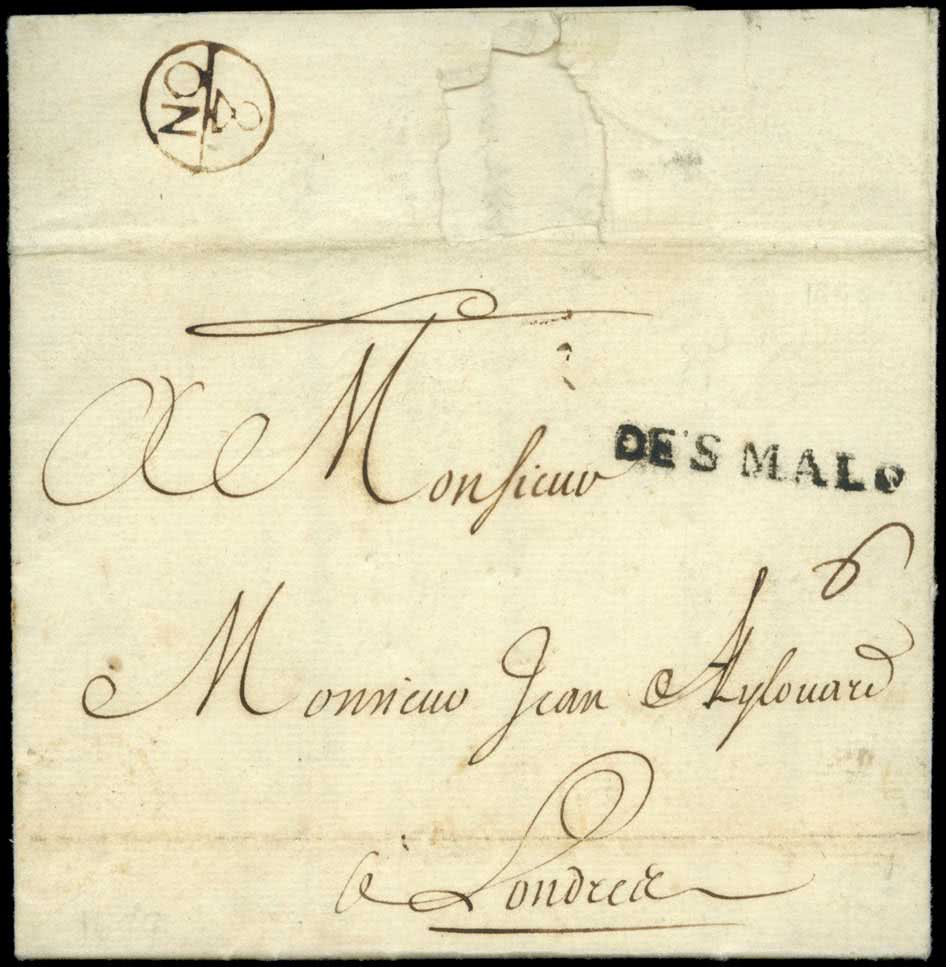 NO
A Monsieur
DE S MALO
6
Monsieur Jean Aylouard
à Londres